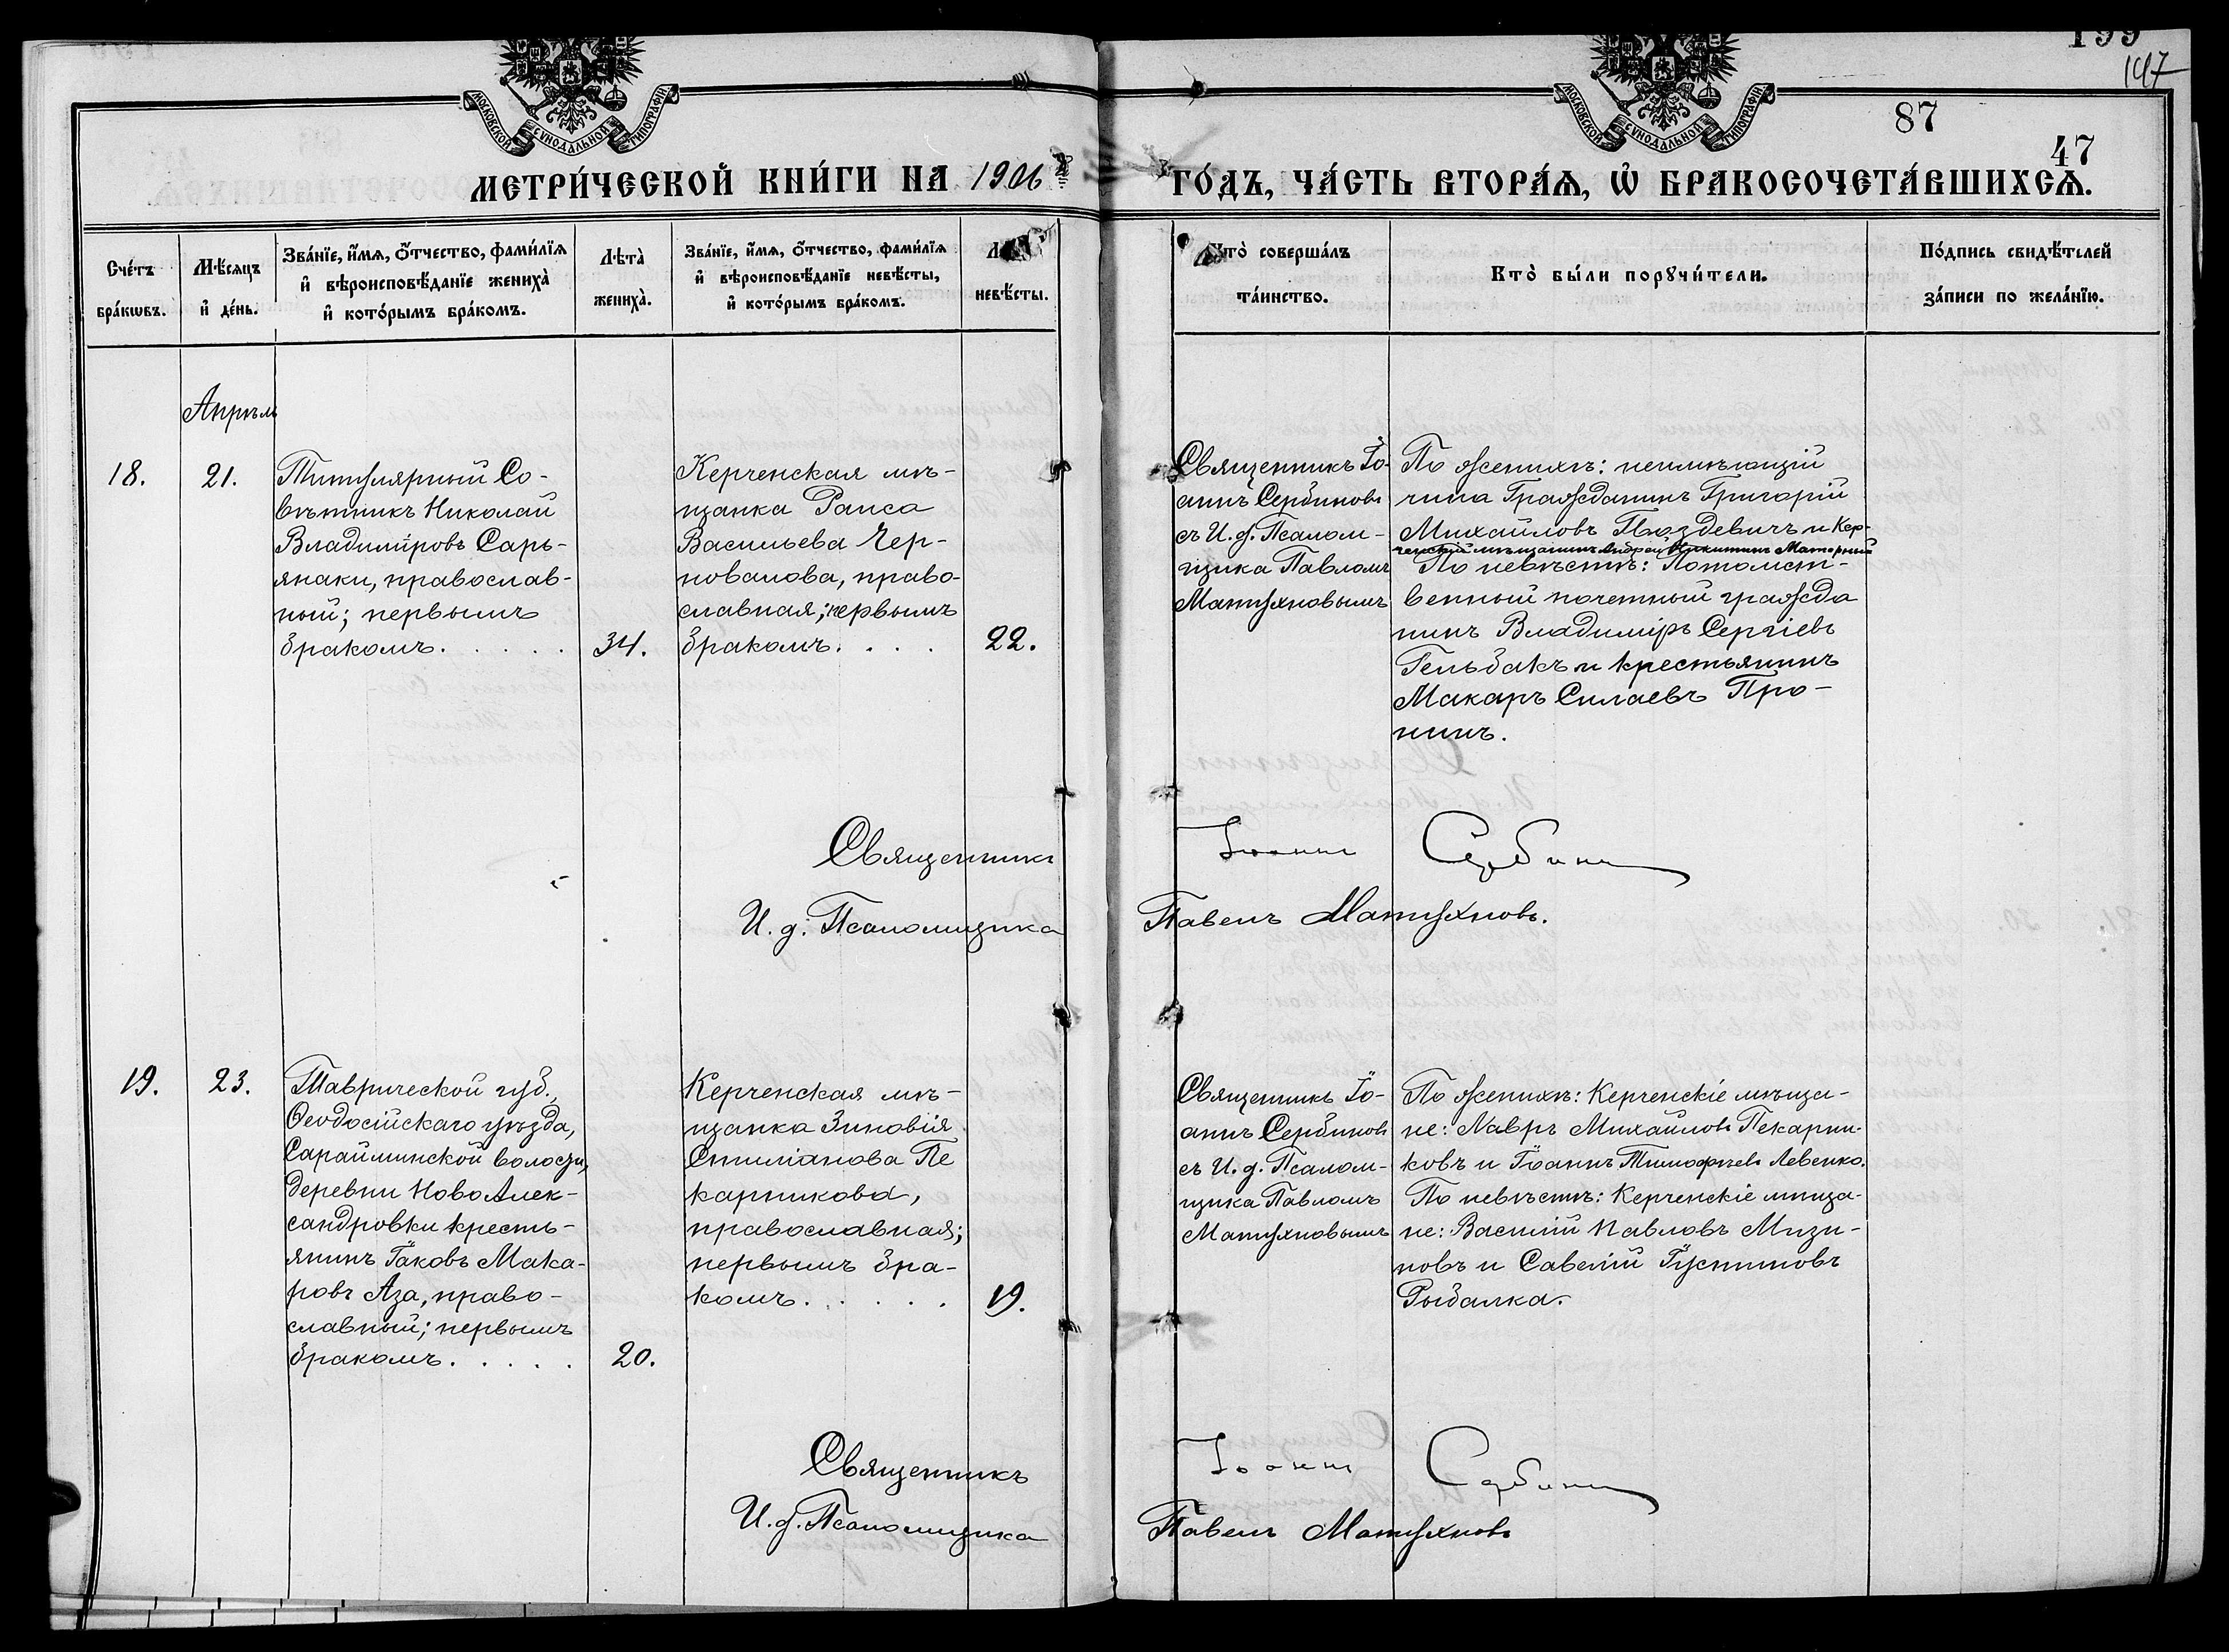 199
147
87
47
МОСКОВСКОЙ СѴНОДАЛЬНОЙ ТИПОГРАФІИ
МОСКОВСКОЙ СѴНОДАЛЬНОЙ ТИПОГРАФІИ
МЕТРИ́ЧЕСКОЙ КНИ́ГИ НА 1906
ГО́ДЪ, ЧА́СТЬ ВТОРА́Я, Ѡ҆ БРАКОСОЧЕТА́ВШИХСЯ.
Сче́тъ
бра́кѡвъ.
Мѣ́сяцъ
и҆ де́нь.
Зва́нїе, и҆́мя, ѻ҆́тчество, фами́лїя
и҆ вѣроисповѣ́данїе жениха̀
и҆ кото́рымъ бра́комъ.
Лѣта̀
жениха̀.
Зва́нїе, и҆́мя, ѻ҆́тчество, фами́лїя
и҆ вѣроисповѣ́данїе невѣ́сты,
и҆ кото́рымъ бра́комъ.
невѣ́сты.
Кто̀ соверша́лъ
та́инство.
Кто̀ бы́ли порꙋчи́тели.
По́дпись свидѣ́телей
за́писи по жела́нїю.
Апрѣль
18.
21.
Титулярный Со-
вѣтникъ Николай
Владиміровъ Сарь-
янаки, православ-
ный; первымъ
бракомъ. . . . .
34.
Керченская мѣ-
щанка Раиса
Васильева Чер-
новалова, право-
славная; первымъ
бракомъ. . . .
22.
Священникъ Іо-
аннъ Сербиновъ
съ И. д. Псалом-
щика Павломъ
Матухновымъ
По женихѣ: неимѣющій
чина Гражданинъ Григорій
Михайловъ Гвоздевичъ и Кер-
ченскій мѣщанинъ Андрей Никитинъ Маторный
По невѣстѣ: Потомст-
венный почетный гражда
нинъ Владиміръ Сергіевъ
Гельбакъ и крестьянинъ
Макаръ Силаевъ Про-
нинъ.
Священникъ
Іоаннъ Сербиновъ
И. д. Псаломщика
Павелъ Матухновъ.
19.
23.
Таврической губ.,
Ѳеодосійскаго уѣзда,
Сарайминской волости,
деревни Ново Алек-
сандровки кресть-
янинъ Іаковъ Мака-
ровъ Аза, право-
славный; первымъ
бракомъ. . . . .
20.
Керченская мѣ-
щанка Зиновія
Стиліанова Пе
карникова,
православная;
первымъ бра-
комъ. . . . .
19.
Священникъ Іо-
аннъ Сербиновъ
съ И. д. Псалом-
щика Павломъ
Матухновымъ
По женихѣ: Керченскіе мѣща-
не: Лавръ Михайловъ Пекарни-
ковъ и Іоаннъ Тимофѣевъ Левенко.
По невѣстѣ: Керченскіе мѣща-
не: Василій Павловъ Мизи-
новъ и Савелій Іустиновъ
Рыбалка.
Священникъ
Іоаннъ Сербиновъ
И. д. Псаломщика
Павелъ Матухновъ